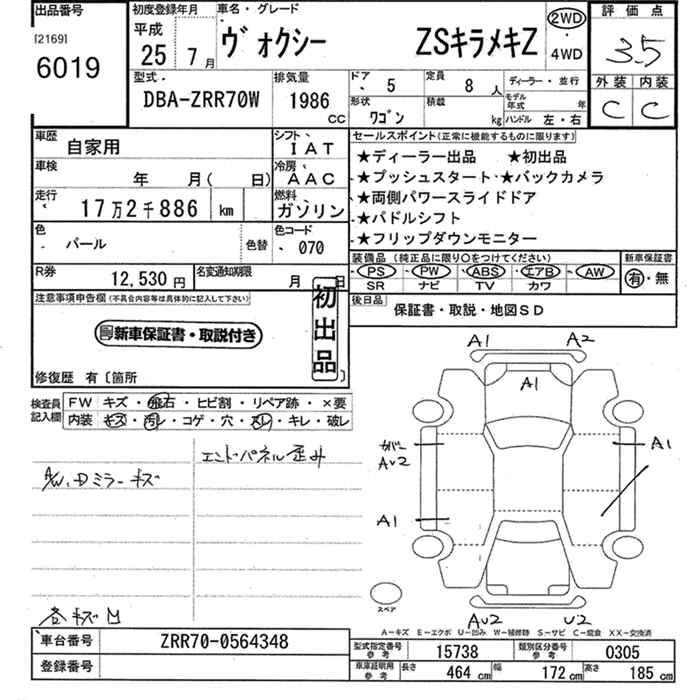 出品番号
[2169]
6019
初度登録年月
平成
25年7月
車名・グレード
ヴォクシー ZSキラメキZ
2WD
・
4WD
評価点
3.5
外装 内装
C C
型式
DBA-ZRR70W
排気量
1986
CC
ドア 5
定員 8 人
形状 ワゴン
積載 kg
ディーラー・並行
モデル年式 年
ハンドル 左・右
車歴 自家用
シフト IAT
車検 年 月( 日)
冷房 AAC
走行 17万2千886 km
燃料 ガソリン
色 パール
色替
色コード 070
R券 12,530円
名変通知期限 月 日
セールスポイント(正常に機能するものに限ります)
★ディーラー出品 ★初出品
★プッシュスタート・★バックカメラ
★両側パワースライドドア
★パドルシフト
★フリップダウンモニター
装備品 (純正品に限り○をつけてください)
PS・PW・ABS・エアB・AW
SR ナビ TV カワ
新車保証書
有・無
後日品 保証書・取説・地図SD
注意事項申告欄(不具合内容等は具体的に記入して下さい)
初出品
新車保証書・取説付き
修復歴 有〔箇所
検査員記入欄
FW キズ・飛石・ヒビ割・リペア跡・×要
内装 キズ・汚レ・コゲ・穴・スレ・キレ・破レ
エンドパネル歪み
A/W、Dミラーキズ
各キズ凹
A1 A2
A1
カバー
AU2
A1
A1
スペア
AU2 U2
A-キズ E-エクボ U-凹み W-補修跡 S-サビ C-腐食 XX-交換済
車台番号 ZRR70-0564348
登録番号
型式指定番号 参考 15738
類別区分番号 参考 0305
車庫証明用 参考 長さ 464 cm 幅 172 cm 高さ 185 cm